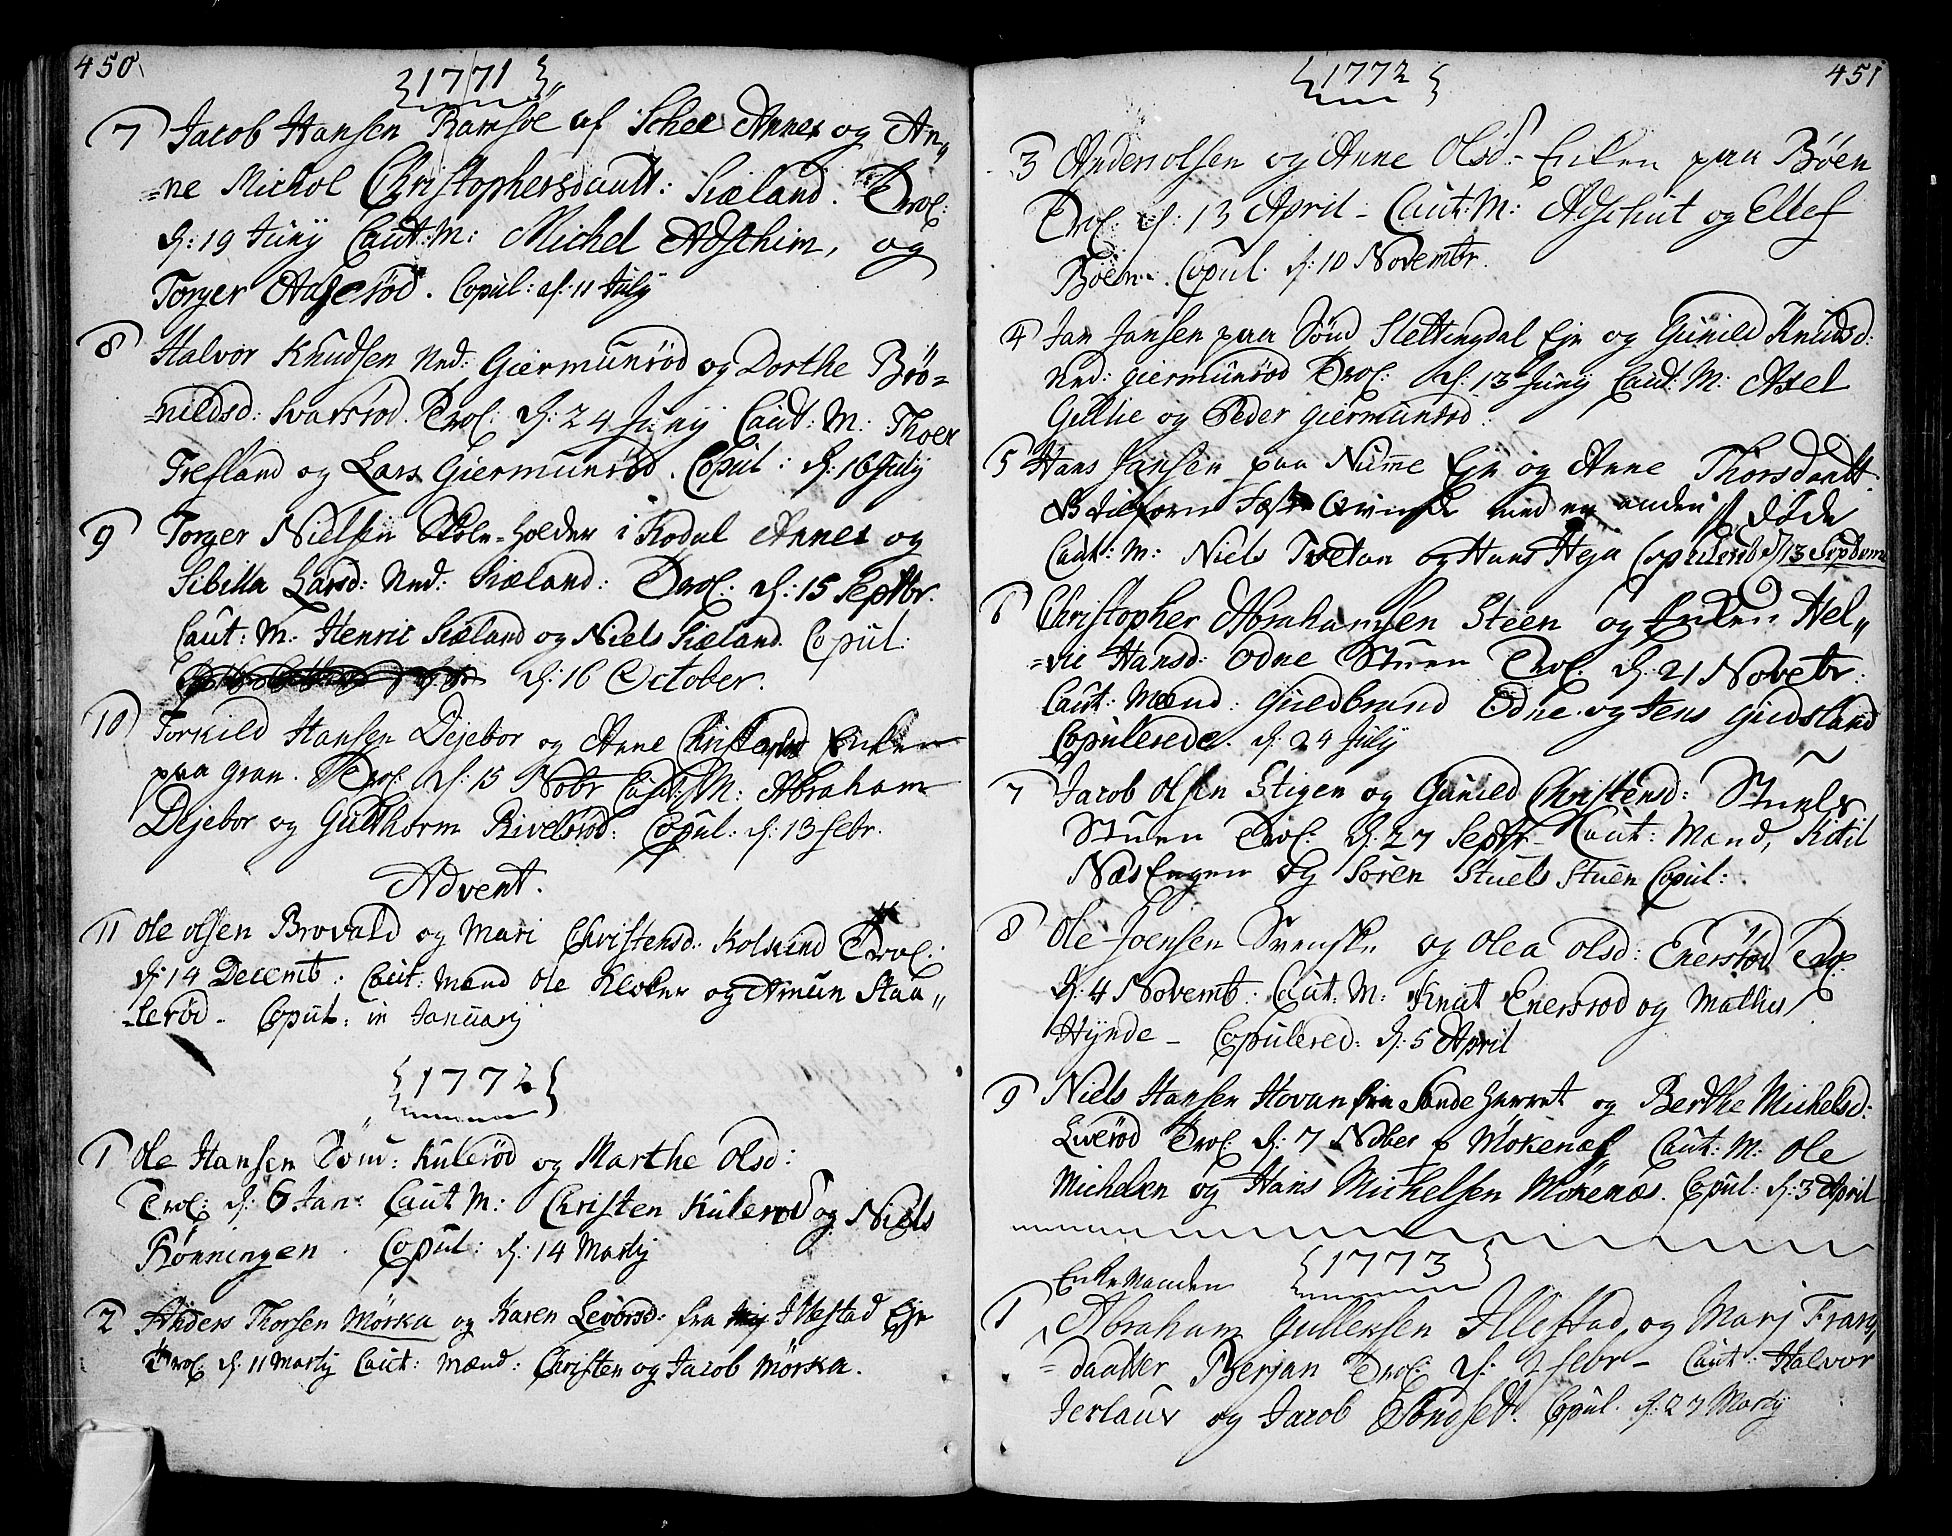 450
1771
7 Jacob Hansen Ramsöe af Schee Annex og An„
=ne Michol Christophersdautt: Siæland. Trol:
d: 19 Juny Caut: M: Michel Adschim, og
Torger Aagerød. Copul: d: 11 July
8 Halvor Knudsen Und: Giermunrød og Dorthe Brö=
=nildsd: Svarsrod. Trol: d: 24 Juny Caut: M: Thoer
Trefland og Lars Giermunrød. Copul: d: 16 July
9 Torger Nielsen Skole-holder i Kodal Annex og
Sibilla Larsd: Und: Siæland: Trol: d: 15 Septbr.
Caut: M: Henric Siæland og Niels Siæland. Copul:
d: 16 October.
10 Torkild Hansen Dejebor og Anne Enken
paa gran. Trol: d: 15 Nobr Caut: M: Abraham
Dejebor og Gulthorm Rivelsrød: Copul: d: 13 febr.
Advent.
11 Ole Olsen Brovald og Mari Christensd: Kolsrind Trol:
d: 14 Decemb: Caut: Mænd Ole Klever og Amun Staa„
=lerød. Copul: in January
1772
1 Ole Hansen Sönd: Kulerød og Marthe Olsd:
Trol: d: 6 Jan: Caut M: Christen Kulerød og Niels
Rønningen. Copul: d: 14 Martij
2 Anders Thorsen Mørka og Karen Levorsd: fra Illestad Eje
Trol: d: 11 Martij Caut: Mænd: Christen og Jacob Mørka.
451
1772
3 Anders Olsen og Anne Olsd- Enken paa Bøen
Trol: d: 13 April - Caut: M: Adschut og Ellef
Bøen. Copul. d: 10 Novembr.
4 Jan Jansen paa Sönd Slettingdal Eje og Gunild Knudsd:
Und: giermunrød Trol: d: 13 Juny Caut: M: Axel
Gullie og Peder giermunrød:
5 Hans Jansen paa Numme Eje og Anne Thorsdautt.
NB tilforn Fæst med en anden døde
Caut: M: Niels Tvetan og Hans Heja Copulerede d: 13 Septem
6 Christopher Abrahamsen Steen og Enken Hel„
=vic Hansd: Odne Stuen Trol: d: 21 Novebr.
Caut: Mænd: Guldbrand Odne og Jens Gudsland
Copulerede. d: 24 July
7 Jacob Olsen Stigen og Gunild Christensd: Stuels
Stuen Trol: d: 27 Septbr- Caut: Mænd, Kitil
Næs Engen og Sören Stuels Stuen Copul:
8 Ole Joensen Svenske og Olea Olsd: Enersrød Trol:
d: 4 Novemb: Caut: M: Knut Enersrod og Mathis
Hynde - Copulered: d: 5 April
9 Niels Hansen Hovan fra Sande Herret og Berthe Michelsd:
Liverød Trol: d: 7 Nober p Mökenæs, Caut: M: Ole
Michelsen og Hans Michelsen Mökenæs. Copul: d: 3 April
1773
Enke Manden
1 Abraham Gullersen Illestad og Marj Frans„
=daatter Berjan Trol: d: 2 febr- Caut: Halvor
Jerlaus og Jacob Songset. Copul. d: 27 Martij